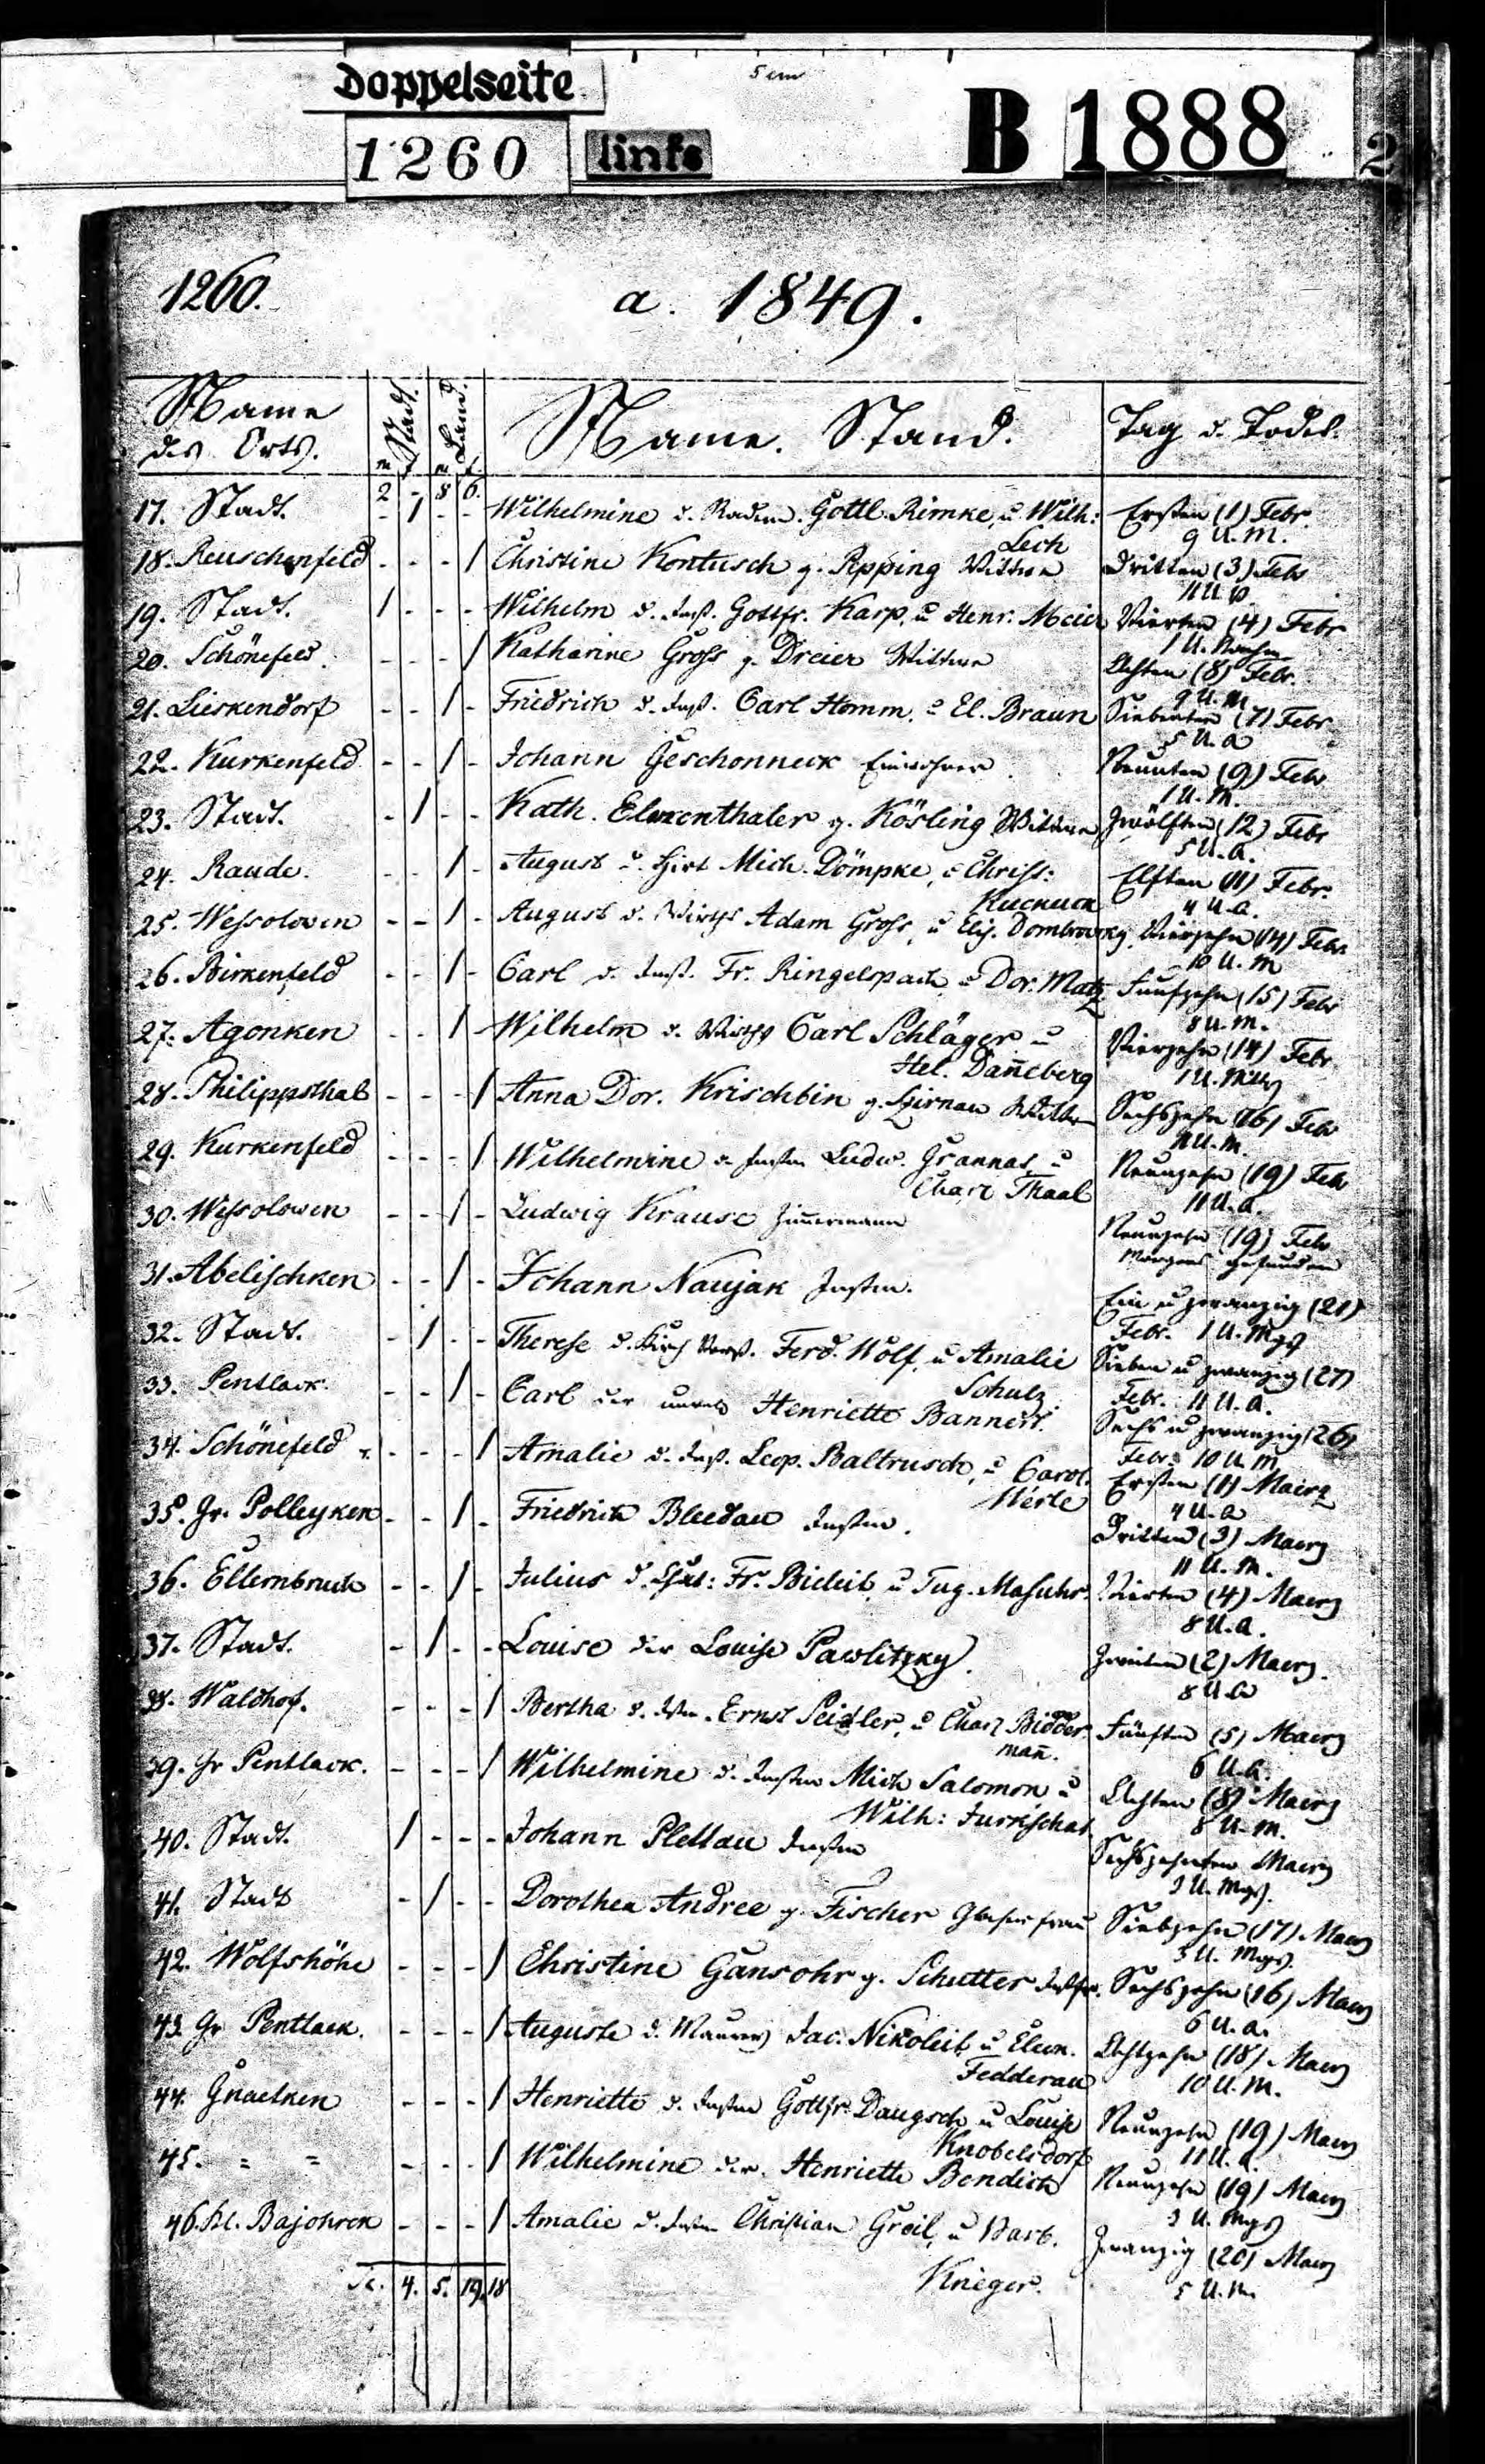 Doppelseite
5 cm
1260 links B 1888 2
1260. a. 1849.
Name des Orts. Stadt. Land. Name. Stand. Tag d. Todes.
m f. m f.
2 - 8 6.
17. Stadt. - 1 - - Wilhelmine d. Gottl. Rimke, u Wilh: Ersten (1) Febr.
Lech 9 U. M.
18. Reuschenfeld - - - 1 Christine Kontusch g. Epping Wittwe Dritten (3) Febr
11 U.
19. Stadt. 1 - - - Wilhelm d. Inst. Gottfr. Karp, u Henr. Meier Vierten (4) Febr
1 U. Nachm
20. Schönefeld. - - - 1 Katharine Gross g. Dreier Wittwe Achten (8) Febr.
9 U. M
21. Lieskendorf - - 1 - Friedrich d. Inst. Carl Homm, u El. Braun Siebenten (7) Febr.
5 U. a
22. Kurkenfeld - - 1 - Johann Geschonneck Einwohner. Neunten (9) Febr
1 U. M.
23. Stadt. - 1 - - Kath. g. Kösling Wittwe Zwölften (12) Febr
5 U. a.
24. Raude. - - 1 - August d. Hirt Mich. Dömpke, u Christ: Elften (11) Febr.
Kuckuck 4 U. a.
25. Wessolowen - - 1 - August d. Wirths Adam Gross, u Elis. Dombrowsky Vierzehn (14) Febr.
10 U. M
26. Birkenfeld - - 1 - Carl d. Inst. Fr. Ringelspach, u Dor. Matz Funfzehn (15) Febr
8 U. M.
27. Agonken - - 1 - Wilhelm d. Wirths Carl Schläger u Vierzehn (14) Febr
Hel. Dan̄eberg 1 U. Mgs
28. Philippsthal - - - 1 Anna Dor. Krischbin g. Wittwe Sechszehn (16) Febr
11 U. M.
29. Kurkenfeld - - - 1 Wilhelmine d. Insten Ludw. Grannas, u Neunzehn (19) Feb
Charl Thaal 11 U. a.
30. Wessolowen - - 1 - Ludwig Krause Zim̄ermann Neunzehn (19) Feb
Morgens gefunden
31. Abelischken - - 1 - Johann Naujak Instm. Ein u zwanzig (21)
Febr. 1 U. Mgs
32. Stadt. - 1 - - Therese d. Ferd. Wolf, u Amalie Sieben u zwanzig (27)
Schulz. Febr. 11 U. a.
33. Pentlack. - - 1 - Carl der unverh Henriette Bannert. Sechs u zwanzig (26)
Febr. 10 U. M
34. Schönefeld - - - 1 Amalie d. Inst. Leop. Baltrusch, u Carol. Ersten (1) Maerz
Werle 4 U. a
35. Gr. Polleyken - - 1 - Friedrich Bledau Instm. Dritten (3) Maerz
11 U. M.
36. Ellernbruch - - 1 - Julius d. Fr. Bieleit, u Aug. Masuhr. Vierten (4) Maerz
8 U. a.
37. Stadt. - 1 - - Louise der Louise Pawlitzky. Zweiten (2) Maerz.
8 U. a
38. Waldhof. - - - 1 Bertha d. Ernst Seidler, u Charl Bidder- Fünften (5) Maerz
man̄. 6 U. a.
39. Gr Pentlack. - - - 1 Wilhelmine d. Insten Mich Salomon u Achten (8) Maerz
Wilh: Jurkschat 8 U. M.
40. Stadt. 1 - - - Johann Plettau Instm Sechszehnten Maerz
3 U. Mgs.
41. Stadt - 1 - - Dorothea Andree g. Fischer Glaserfrau Siebzehn (17) Maerz
3 U. Mgs.
42. Wolfshöhe - - - 1 Christine Gansohr g. Schutter Instfr. Sechszehn (16) Maerz
6 U. a.
43. Gr Pentlack. - - - 1 Auguste d. Maurers Jac. Nikoleit, u Eleon. Achtzehn (18) Maerz
Fedderau 10 U. M.
44. Gnaelken - - - 1 Henriette d. Insten Gottfr. Daugsch, u Louise Neunzehn (19) Maerz
Knobelsdorf 11 U. a.
45. = = - - - 1 Wilhelmine der. Henriette Bendich Neunzehn (19) Maerz
3 U. Mgs
46. Kl. Bajohren - - - 1 Amalie d. Insten Christian Groil, u Barb. Zwanzig (20) Maerz
Krieger. 5 U. M.
4. 5. 19 18